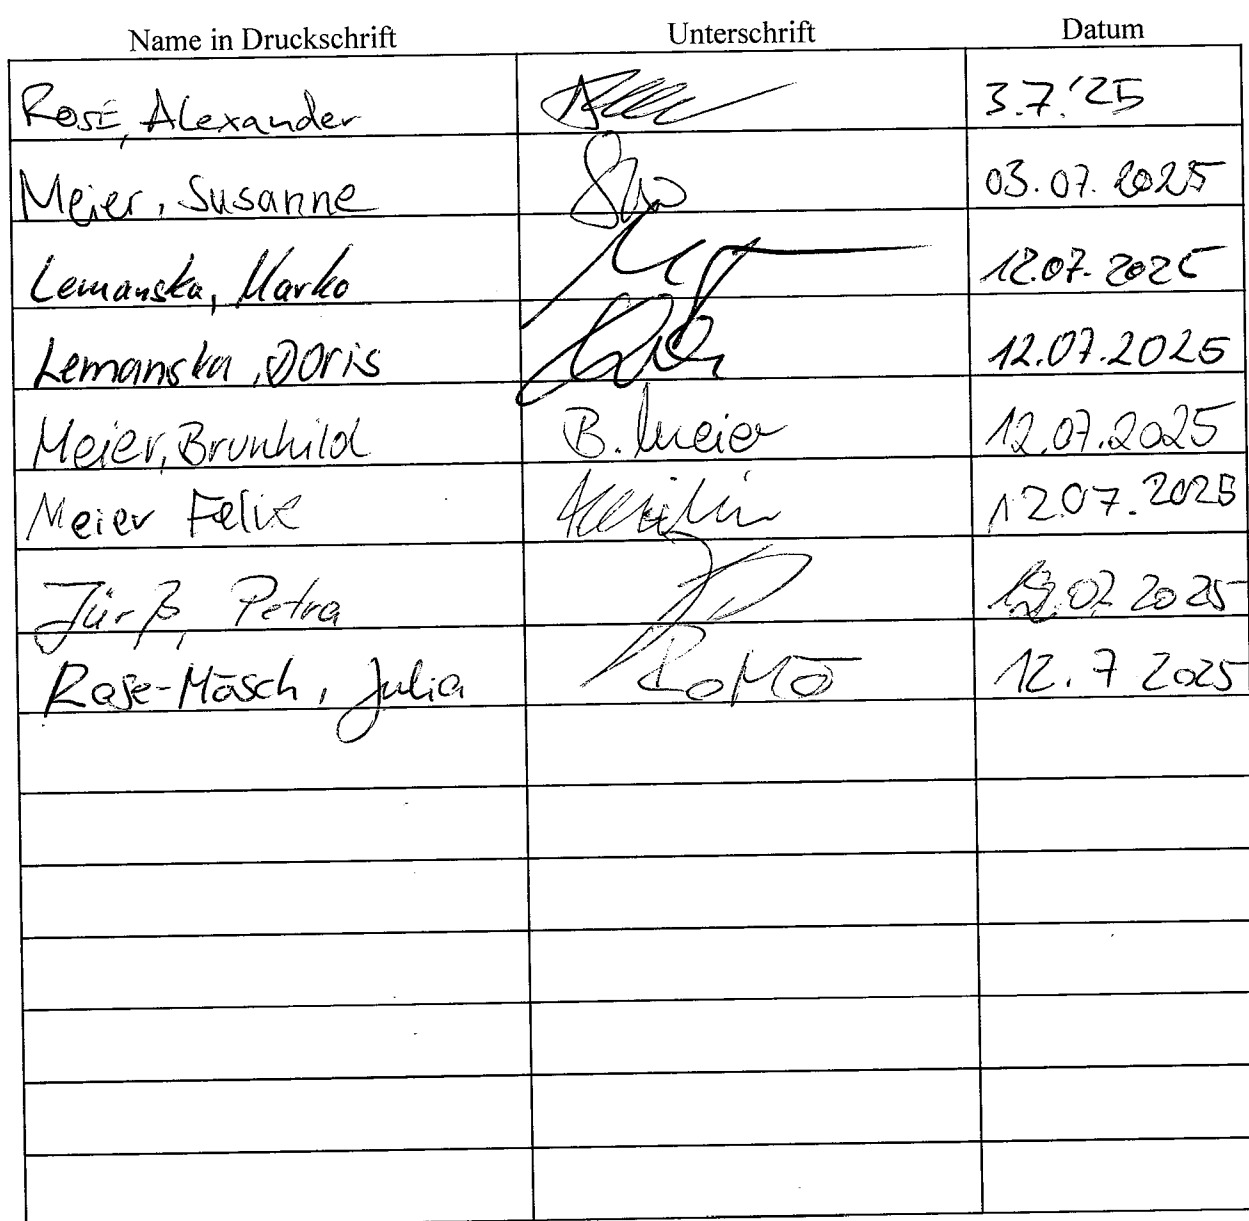 Name in Druckschrift Unterschrift Datum
Rose, Alexander 3.7.'25
Meier, Susanne 03.07.2025
Lemanska, Marko 12.07.2025
Lemanska, Doris 12.07.2025
Meier, Brunhild B. Meier 12.07.2025
Meier Felix 12.07.2025
Jürß, Petra 07.2025
Rose-Mösch, Julia RoMö 12.7 2025